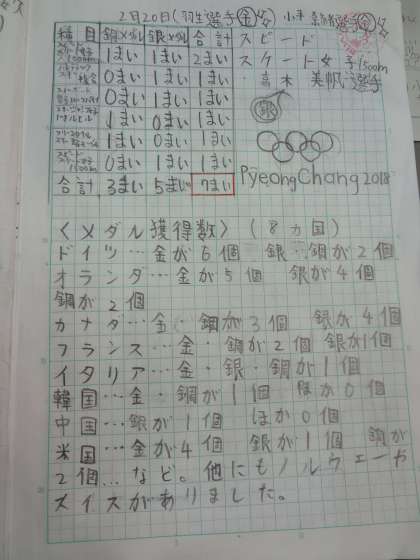 2月20日(羽生選手金)小平奈緒選手金
種目 銅メダル 銀メダル 合計
1まい 1まい 2まい
0まい 1まい 1まい
0まい 1まい 1まい
1まい 0まい 1まい
1まい 0まい 1まい
0まい 1まい 1まい
合計 3まい 5まい 7まい
スピード
スケート女子1500m
高木 美帆選手
銀
PyeongChang 2018
〈メダル獲得数〉(8ヵ国)
ドイツ…金が6個 銀・銅が2個
オランダ…金が5個 銀が4個
銅が2個
カナダ…金・銅が3個 銀が4個
フランス…金・銅が2個 銀が1個
イタリア…金・銀・銅が1個
韓国…金・銅が1個 ほか0個
中国…銀が1個 ほか0個
米国…金が4個 銀が1個 銅が
2個…など。他にもノルウェーや
スイスがありました。